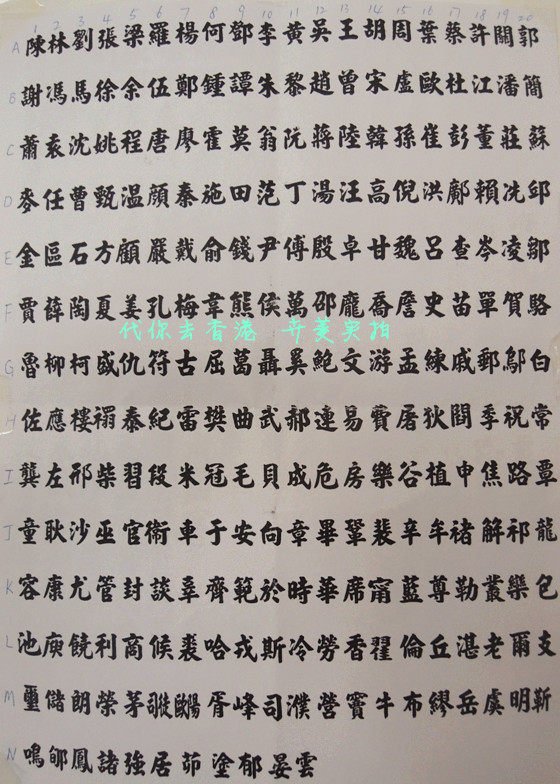 1 2 3 4 5 6 7 8 9 10 11 12 13 14 15 16 17 18 19 20
A 陳林劉張梁羅楊何鄧李黃吳王胡周葉蔡許關郭
B 謝馮馬徐余伍鄭鍾譚朱黎趙曾宋盧歐杜江潘簡
C 蕭袁沈姚程唐廖霍莫翁阮蔣陸韓孫崔彭董莊蘇
D 麥任曹甄溫顏秦施田范丁湯汪高倪洪鄺賴冼邱
E 金區石方顧嚴戴俞錢尹傅殷卓甘魏呂查岑凌鄒
F 賈薛陶夏姜孔梅韋熊侯萬邵龐喬詹史苗單賀駱
代你去香港 齐羙实拍
G 魯柳柯盛仇符古屈葛聶奚鮑文游孟練戚郵鄔白
H 佐應樓禤泰紀雷樊曲武郝連易費屠狄閻季祝常
I 龔左邢柴習段米冠毛貝成危房樂谷植申焦路覃
J 童耿沙巫官衛車于安向章畢鞏裴辛牟褚解祁龍
K 容康尤管封談辜齊範於時華席甯藍尊勒叢欒包
L 池庾饒利商候裘哈戎斯冷勞香翟倫丘湛老爾支
M 璽儲朗榮茅司徒歐陽胥峰司濮營竇牛布繆岳虞明靳
N 鳴鄔鳳諸強居茆塗郁晏雲